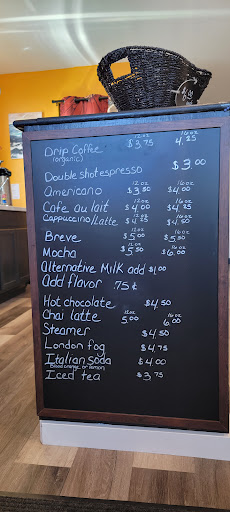 12oz 16oz
Drip Coffee $3.75 4.25
(organic)
Double shot espresso $3.00
12oz 16oz
Americano $3.50 $4.00
12oz 16oz
Cafe au lait $4.00 $4.25
Cappuccino/Latte $4.00 $4.50
12oz 16oz
Breve $5.00 $5.50
12oz 16oz
Mocha $5.50 $6.00
Alternative Milk add $1.00
Add flavor .75¢
Hot chocolate $4.50
12oz 16oz
Chai latte 5.00 6.00
Steamer $4.50
London fog $4.75
Italian Soda $4.00
(Blood orange or lemon)
Iced tea $3.75